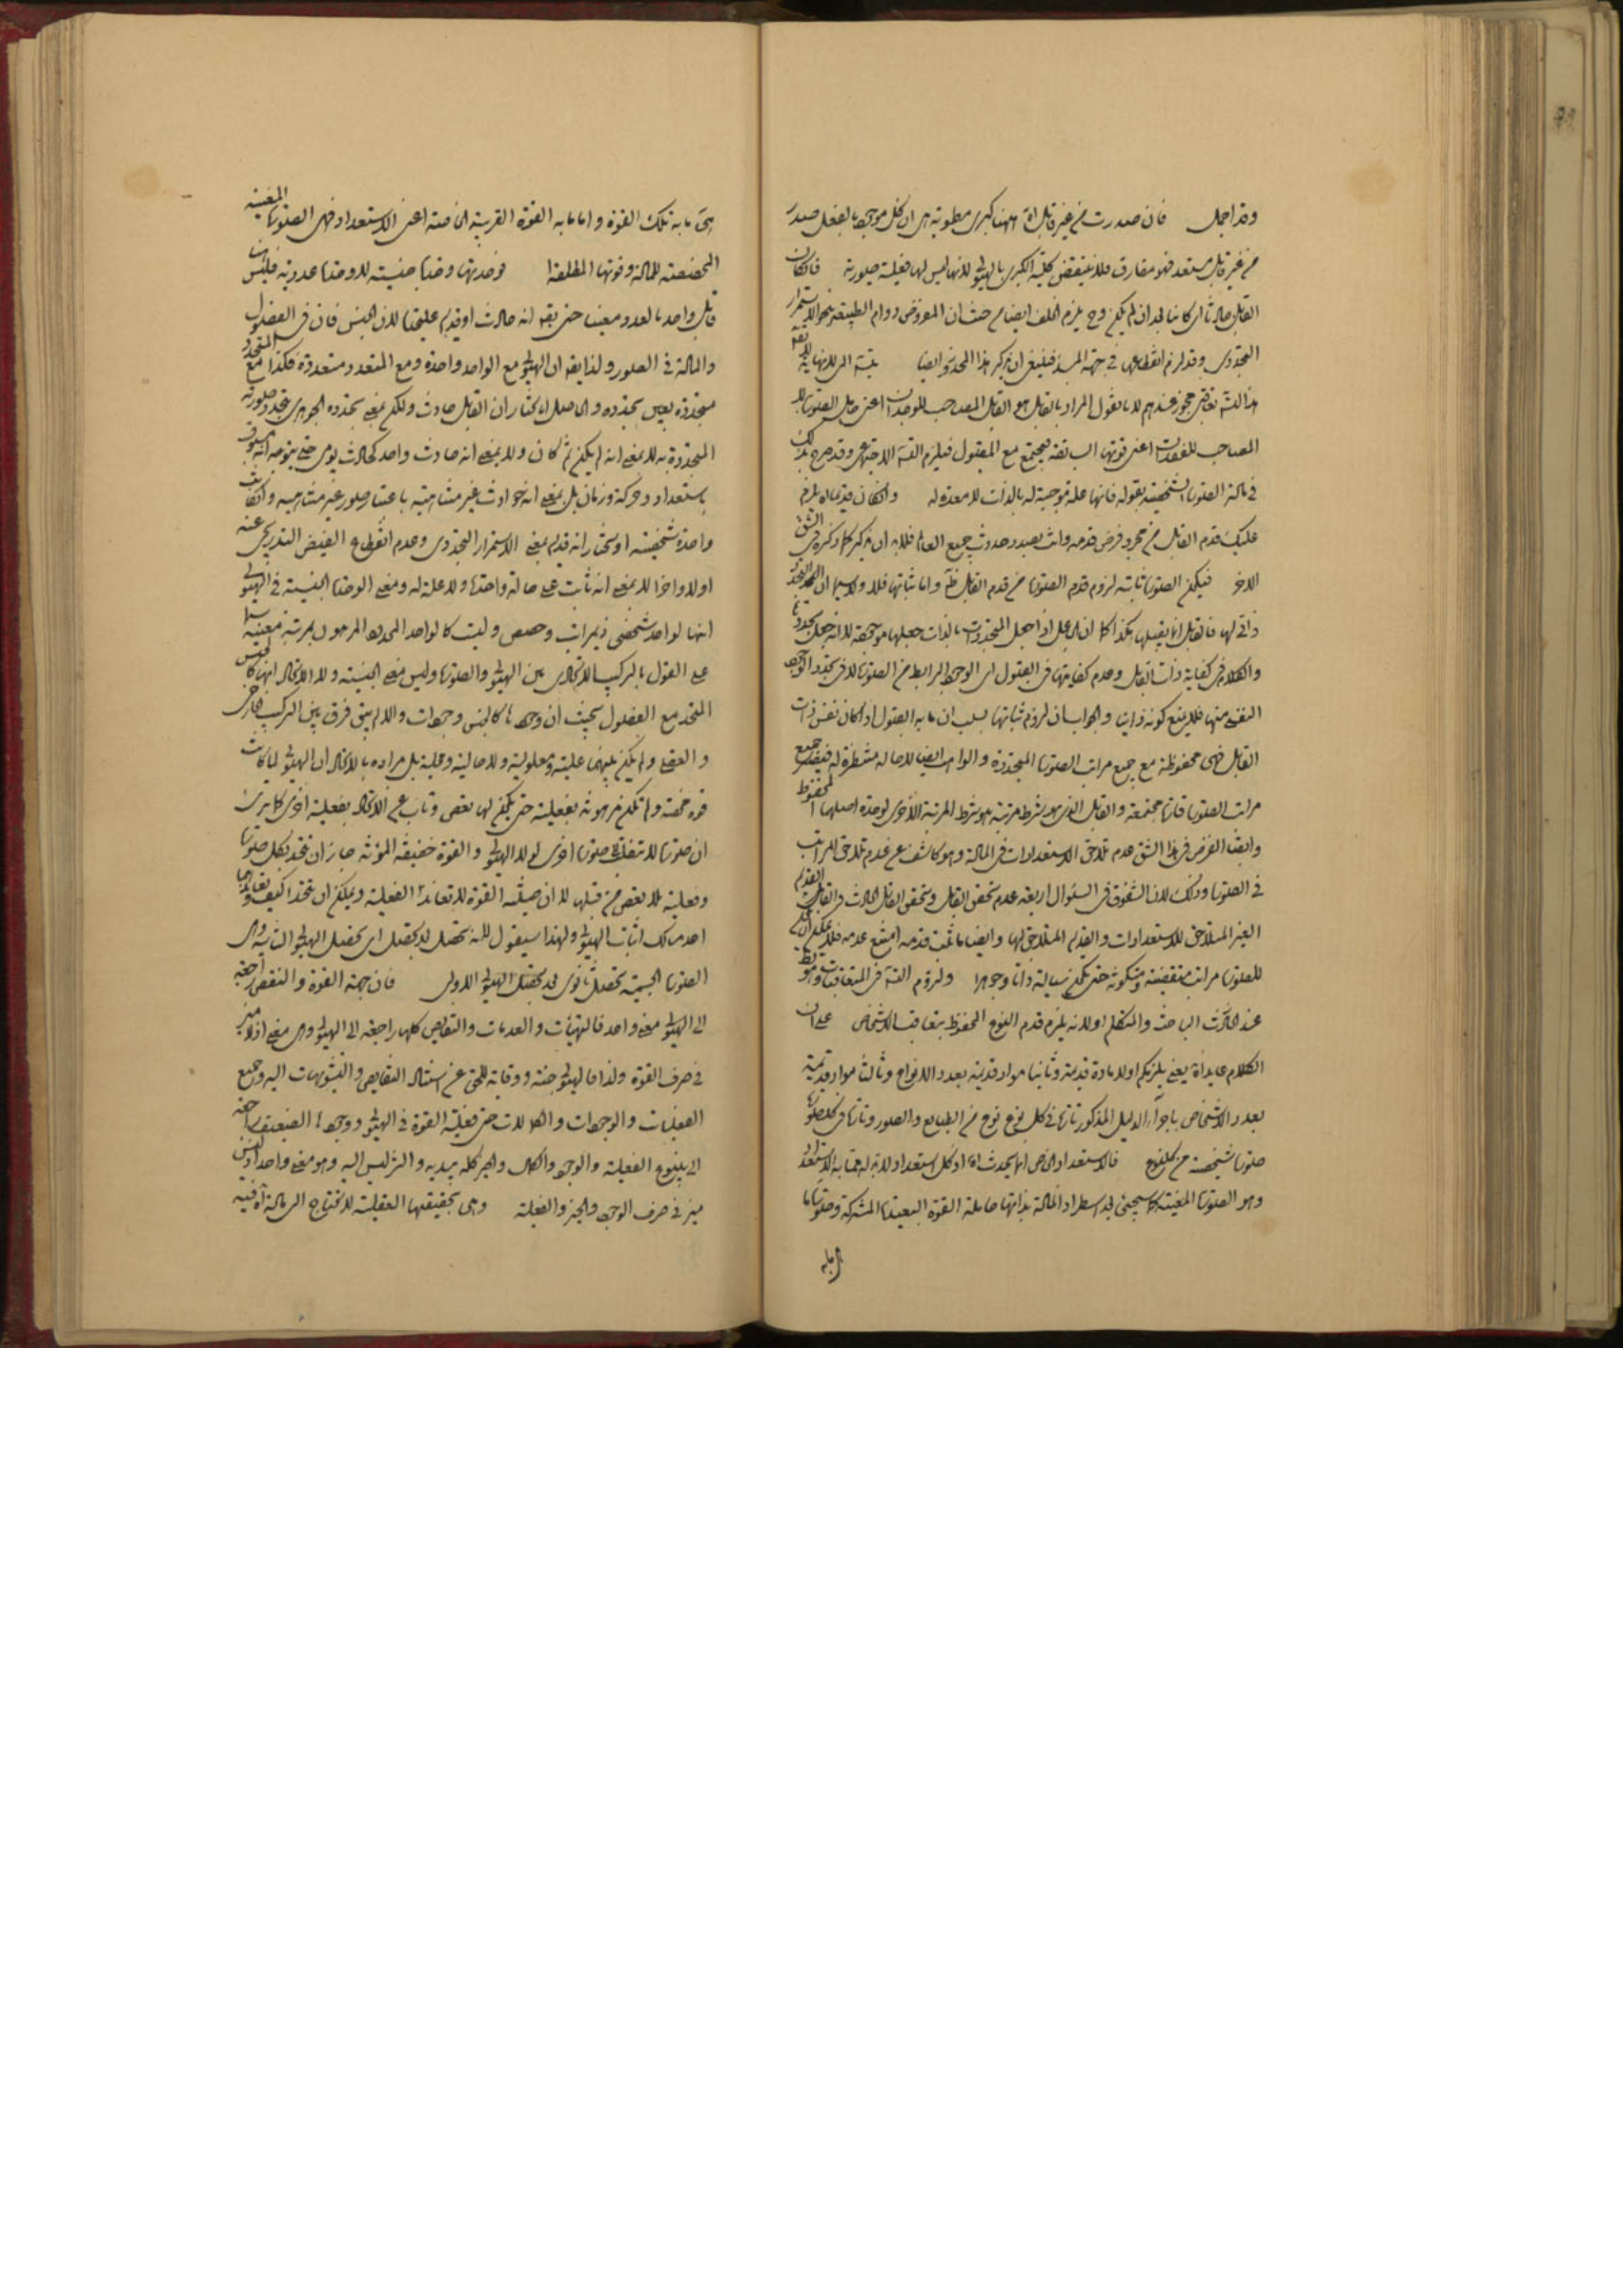 وقد اجمل فان صدرت من غير قابل اه ههنا كبرى مطوية هى ان كل موجود بالفعل صدر
من غير قابل مستعد فهو مفارق فلا ينتقض كلية الكبرى بالهيولى لانها ليس لها فعلية صورية فان كان
القابل حادثا اى كائنا بعد ان لم يكن وح يلزم الخلف ايضا من حيث ان المفروض دوام الطبيعة بنحو الاستمرار
التجددى وقد لزم انقطاعها فى جهة المبدء فينبغى ان يذكر هذا المحذور ايضا
هذا التس تعاقبى مجوز عندهم لانا نقول المراد بالقابل هو القابل المصاحب للوجدان اعنى حامل الصورة لا
المصاحب للفقدان اعنى قوتها السابقة فيجتمع مع المقبول فيلزم التس الاجتماعى وقد صرح بذلك
فى مادة الصورة الشخصية بقوله فانها علة موجبة له بالذات لا معدة له وان كان قديما اه يلزم
عليك قدم القابل من مجرد فرض قدمه وانت بصدد حدوث جميع العالم فلا بد ان يذكر كما ذكره فى الشق
الاخر فيكون الصورة ثابتة لزوم قدم الصورة من قدم القابل ظ واما ثباتها فلا ولا سيما ان التجدد
ذاتى لها فالقابل انما يقبلها هكذا كما ان الجاعل اذا جعل المتجدد بالذات جعلها موجودة لا انه جعل تجددها
والكلام فى كفاية ذات القابل وعدم كفايتها فى القبول اى الوجود الرابط من الصورة لا فى تجدد الوجود
النفسى منها فلا ينع كونه ذاتيا والجواب ان لزوم ثباتها بسبب ان ما به القبول اذا كان نفس ذات
القابل فهى محفوظة مع جميع مراتب الصورة المتجددة والواهب ايضا لا حالة منتظرة له فيفيض جميع
مراتب الصورة قارة مجتمعة والقابل الذى هو بشرط مرتبة هو بشرط المرتبة الاخرى لوحدة اصلها المحفوظ
وايضا الفرض فى هذا الشق عدم تلاحق الاستعدادات فى المادة وهو كاشف عن عدم تلاحق المراتب
فى الصورة وذلك لان الشقوق فى السئوال اربعة عدم تحقق القابل وتحقق القابل الحادث والقابل القديم
الغير المتلاحق للاستعدادات والقديم المتلاحق لها وايضا ما ثبت قدمه امتنع عدمه فلا يمكن ان يكون
للصورة مراتب منقضية ومتكونة حتى يكون سيالة ذاتا وجوهرا ولزوم التس فى المتعاقبات وهو بط
عند الحادث الباحث والمتكلم او لانه يلزم قدم النوع المحفوظ بتعاقب الاشخاص على ان
الكلام عايد اه يعنى يلزمكم اولا مادة قديمة وثانيا مواد قديمة بعدد الانواع وثالثا مواد قديمة
بعدد الاشخاص باجراء الدليل المذكور تارة فى كل نوع نوع من الطبايع والصور وتارة فى كل صورة
صورة شخصية من كل نوع فالاستعداد الخاص انما يحدث اه اذ كل استعداد لا بد له مما به الاستعداد
وهو الصورة المعينة كما سيجئ بعد اسطر اذ المادة بذاتها حاملة القوة البعيدة المشتركة وصورة ما
اى ما به
هى ما به تلك القوة واما ما به القوة القريبة الخاصة اعنى الاستعداد فهى الصورة المعينة
المخصصة للمادة وقوتها المطلقة فوحدتها وحدة جنسية لا وحدة عددية فليس
قابل واحد بالعدد معينا حتى يقه انه حادث او قديم عليحدة لان الجنس فان فى الفصول
والمادة فى الصور ولذا يقه ان الهيولى مع الواحد واحدة ومع المتعدد متعددة فكذا مع المتجدد
متجددة بعين تجدده والحاصل انا نختار ان القابل حادث ولكن بمعنى تجدده الجوهرى بتجدد صورته
المتجددة به لا بمعنى انه لم يكن ثم كان ولا بمعنى انه حادث واحد كحادث يومى حتى يتوجه انه مسبوق
باستعداد وحركة وزمان بل بمعنى انه حوادث غير متناهية باعتبار صور غير متناهية وان كانت
واحدة شخصية او نختار انه قديم بمعنى الاستمرار التجددى وعدم انقطاع الفيض التدريجى عنه
اولا واخرا لا بمعنى انه ثابت على حالة واحدة ولا علة له ومعنى الوحدة الجنسية فى الهيولى
انها لواحد شخصى ذى مراتب وحصص وليست كالواحد المحدود المرهون بمرتبة معينة سيما
على القول بالتركيب الاتحادى بين الهيولى والصورة وليس معنى الجنسية ولا الاتحاد انها كالجنس
المتحد مع الفصول بحيث ان وجودها كالجنس وجودات والا لم يبق فرق بين التركيب الخارجى
والعقلى ولم يكن بينهما علية ومعلولية ولا حالية ومحلية بل مراده بالاتحاد ان الهيولى لما كانت
قوة محضة ولم تكن مرهونة بفعلية حتى يكون لها تعصى وتاب عن الاتحاد بفعلية اخرى كما ترى
ان صورة لا تنقلب صورة اخرى لم لا الهيولى والقوة خفيفة المؤنة جاز ان تتحد بكل صورة
وفعلية بلا تعصى من قبلها لا ان حيثية القوة لا تعاند الفعلية ويمكن ان تتحدا كيف وتعاندهما
احد مسالك اثبات الهيولى ولهذا سيقول للمادة تحصل لا بتحصل اى تحصل الهيولى الثانية وهى
الصورة الجسمية تحصل ثانوى بعد تحصل الهيولى الاولى فان جهة القوة والنقص راجعة
الى الهيولى معنى واحد فالتهيئات والعدمات والنقايص كلها راجعة الى الهيولى وهى معنى اذ لا ميز
فى صرف القوة ولذا فالهيولى جنة ووقاية للحق عن استناد النقايص والتشويهات اليه وجميع
الفعليات والوجودات والكمالات حتى فعلية القوة فى الهيولى ووجودها الضعيف راجعة
الى ينبوع الفعلية والوجود والكمال والخير كله بيديه والشر ليس اليه وهو معنى واحد اذ ليس
ميز فى صرف الوجود والخير والفعلية وهى بحقيقتها العقلية لا تحتاج الى مادة اه فيه